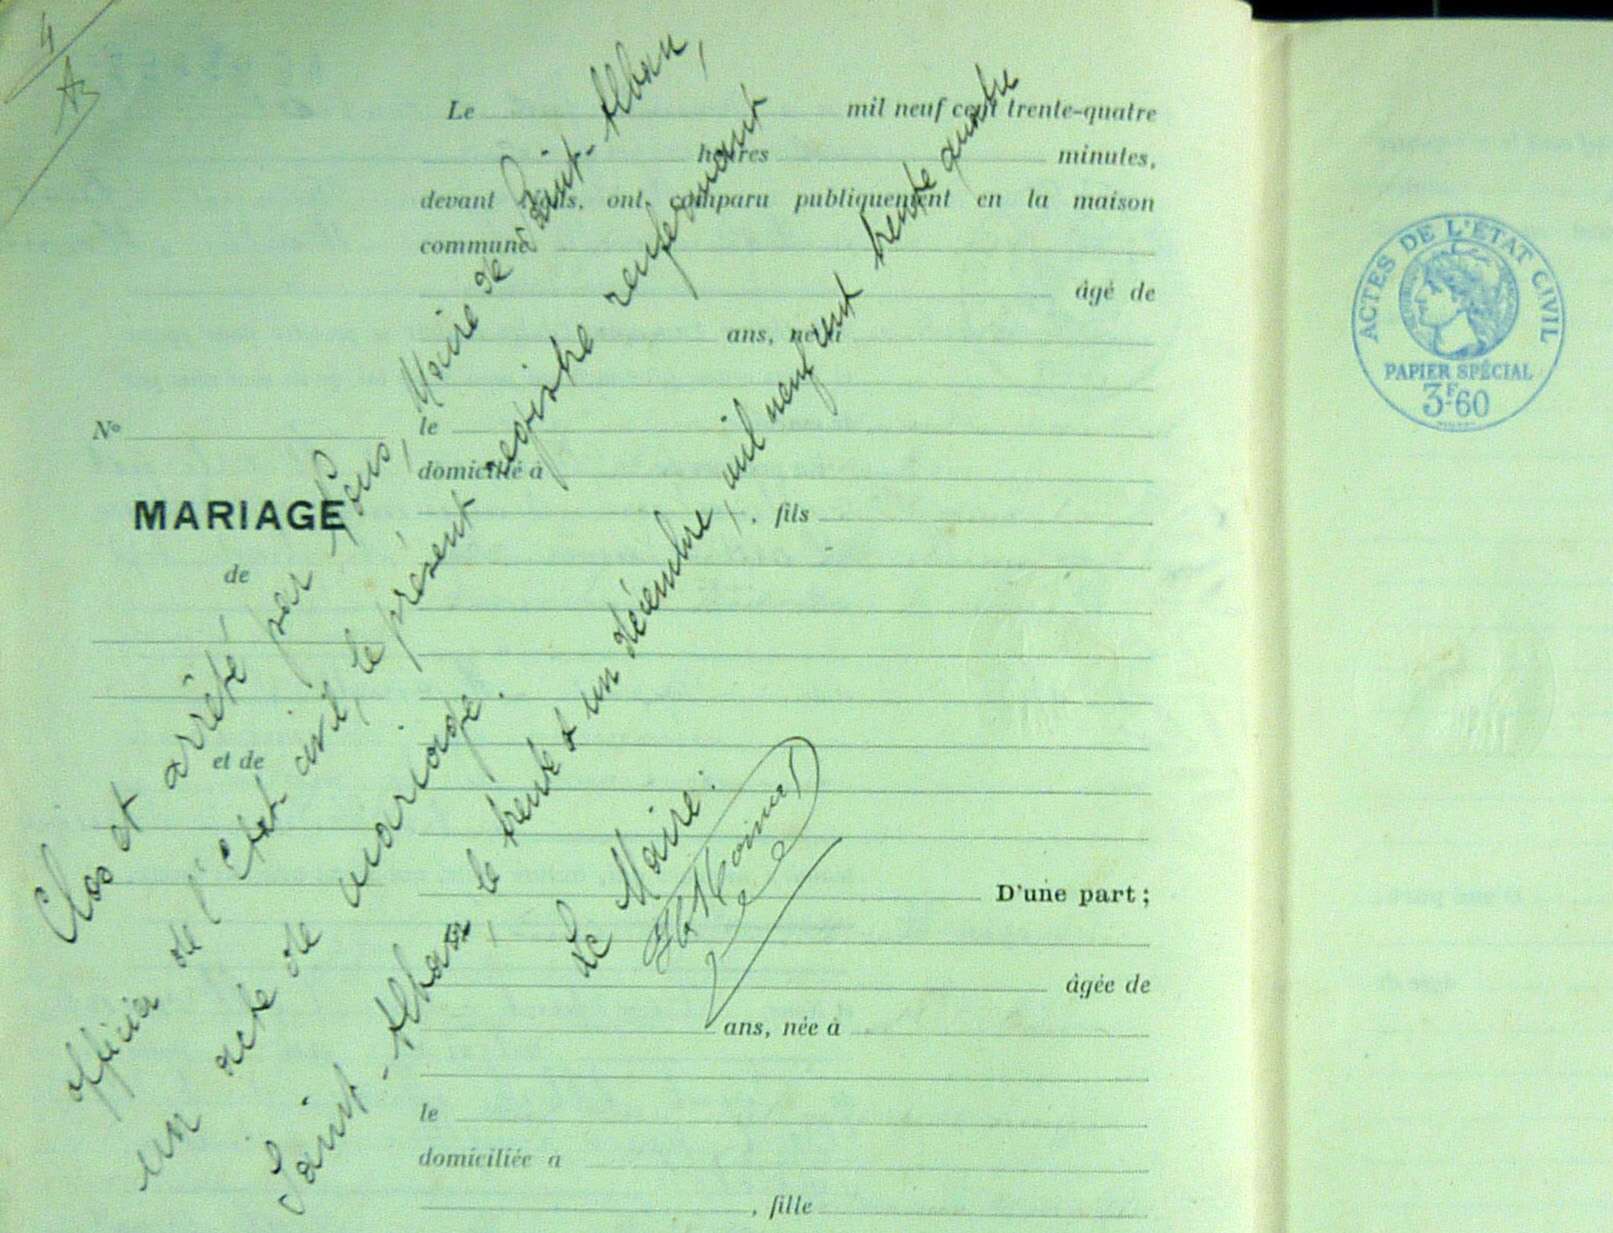 4
Le mil neuf cent trente-quatre
heures minutes,
devant Nous, ont comparu publiquement en la maison
commune
âgé de
ans, né à
N°
le
domicilié à
MARIAGE
, fils
de
et de
D'une part ;
Et
âgée de
ans, née à
le
domiciliée a
, fille
Clos et arrêté par Nous, Maire de Saint-Alban,
officier de l'Etat civil, le présent registre renfermant
un acte de mariage.
Saint-Alban, le trente et un décembre, mil neuf cent trente quatre
Le Maire :
ACTES DE L'ÉTAT CIVIL
PAPIER SPÉCIAL
3F60